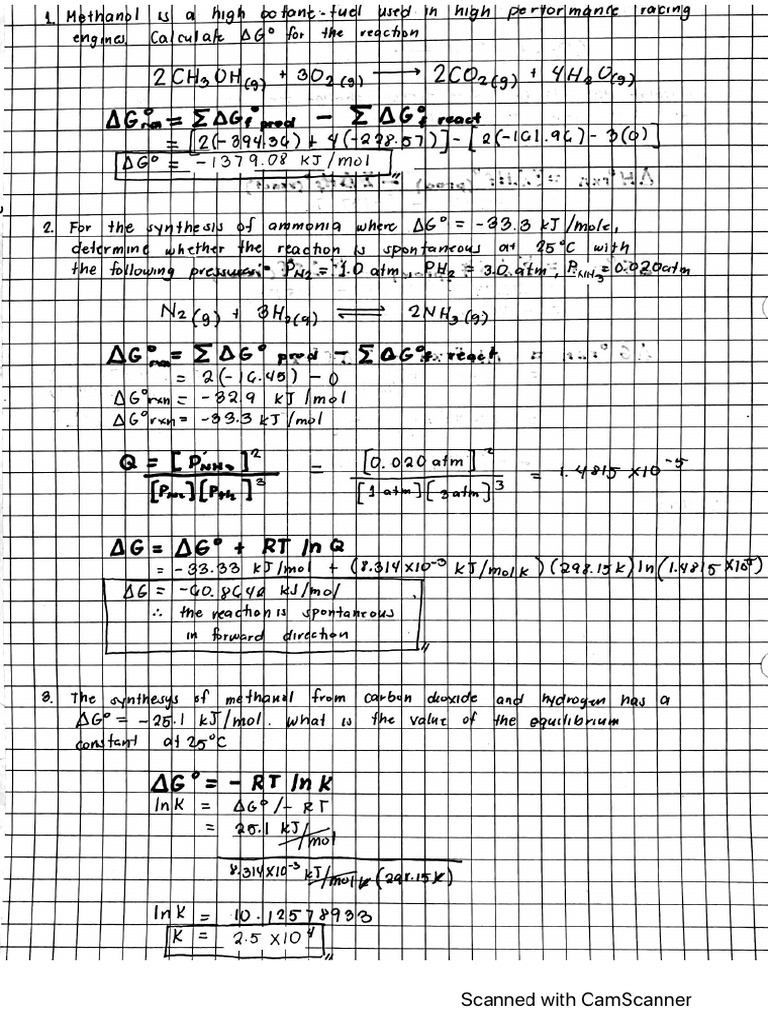 1. Methanol is a high octane-fuel used in high performance racing
engines. Calculate ΔG° for the reaction
2 CH3OH(g) + 3O2(g) → 2CO2(g) + 4H2O(g)
ΔG°rxn = Σ ΔG°f prod − Σ ΔG°f react
= [2(-394.36) + 4(-228.57)] - [2(-161.96) - 3(0)]
ΔG° = -1379.08 KJ/mol
2. For the synthesis of ammonia where ΔG° = -33.3 kJ/mole,
determine whether the reaction is spontaneous at 25°C with
the following pressures: PN2 = 1.0 atm, PH2 = 3.0 atm, PNH3 = 0.020atm
N2(g) + 3H2(g) ⇌ 2NH3(g)
ΔG°rxn = Σ ΔG° prod − Σ ΔG°f react.
= 2(-16.45) - 0
ΔG°rxn = -32.9 kJ/mol
ΔG°rxn = -33.3 kJ/mol
Q = [PNH3]² / [PN2][PH2]³ = [0.020 atm]² / [1 atm][3 atm]³ = 1.4815 x10⁻⁵
ΔG = ΔG° + RT ln Q
= -33.33 kJ/mol + (8.314x10⁻³ kJ/molk)(298.15k) ln(1.4815 x10⁻⁵)
ΔG = -60.8642 kJ/mol
∴ the reaction is spontaneous
in forward direction
3. The synthesys of methanol from carbon dioxide and hydrogen has a
ΔG° = -25.1 kJ/mol. what is the value of the equilibrium
constant at 25°C
ΔG° = - RT ln K
ln K = ΔG° /- RT
= 25.1 kJ/mol
8.314x10⁻³ kJ/mol k (298.15k)
ln K = 10.12578933
K = 2.5 x10⁴
Scanned with CamScanner